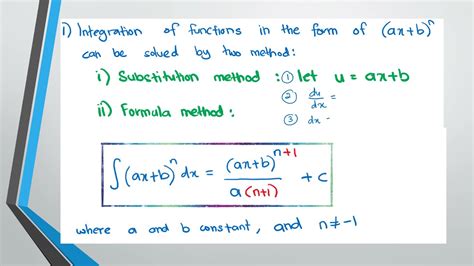 1) Integration of functions in the form of (ax+b)^n
can be solved by two method:
i) Substitution method : ① let u = ax+b
② du/dx =
ii) Formula method :
③ dx =
∫(ax+b)^n dx = (ax+b)^(n+1) / a(n+1) + c
where a and b constant, and n ≠ -1